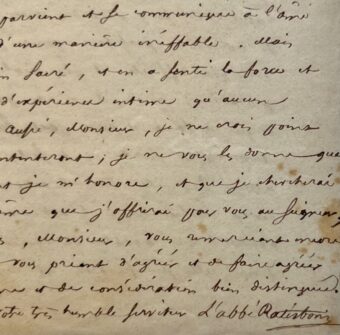 parvient et se communique à l'âme
d'une manière ineffable. Mais
sacré, et en a senti la force et
d'expérience intime qu'aucun
Aussi, Monsieur, je ne crois point
; je ne vous les donne que
et je m'honore, et que je chercherai
que j'offrirai pour vous au Seigneur
, Monsieur, vous remerciant encore
vous priant d'agréer et de faire agréer
et de considération bien distinguée
votre très humble serviteur L'abbé Ratisbonne